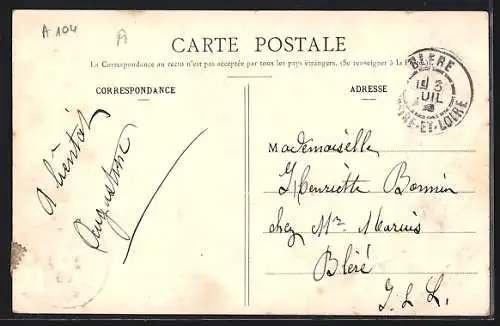 A 104
A
CARTE POSTALE
La Correspondance au recto n'est pas acceptée par tous les pays étrangers. (Se renseigner à la
CORRESPONDANCE
ADRESSE
BLERE
3
JUIL
INDRE-ET-LOIRE
A bientôt
Augustine
Mademoiselle
Henriette Bonnin
chez Mr. Marius
Bléré
I. L.